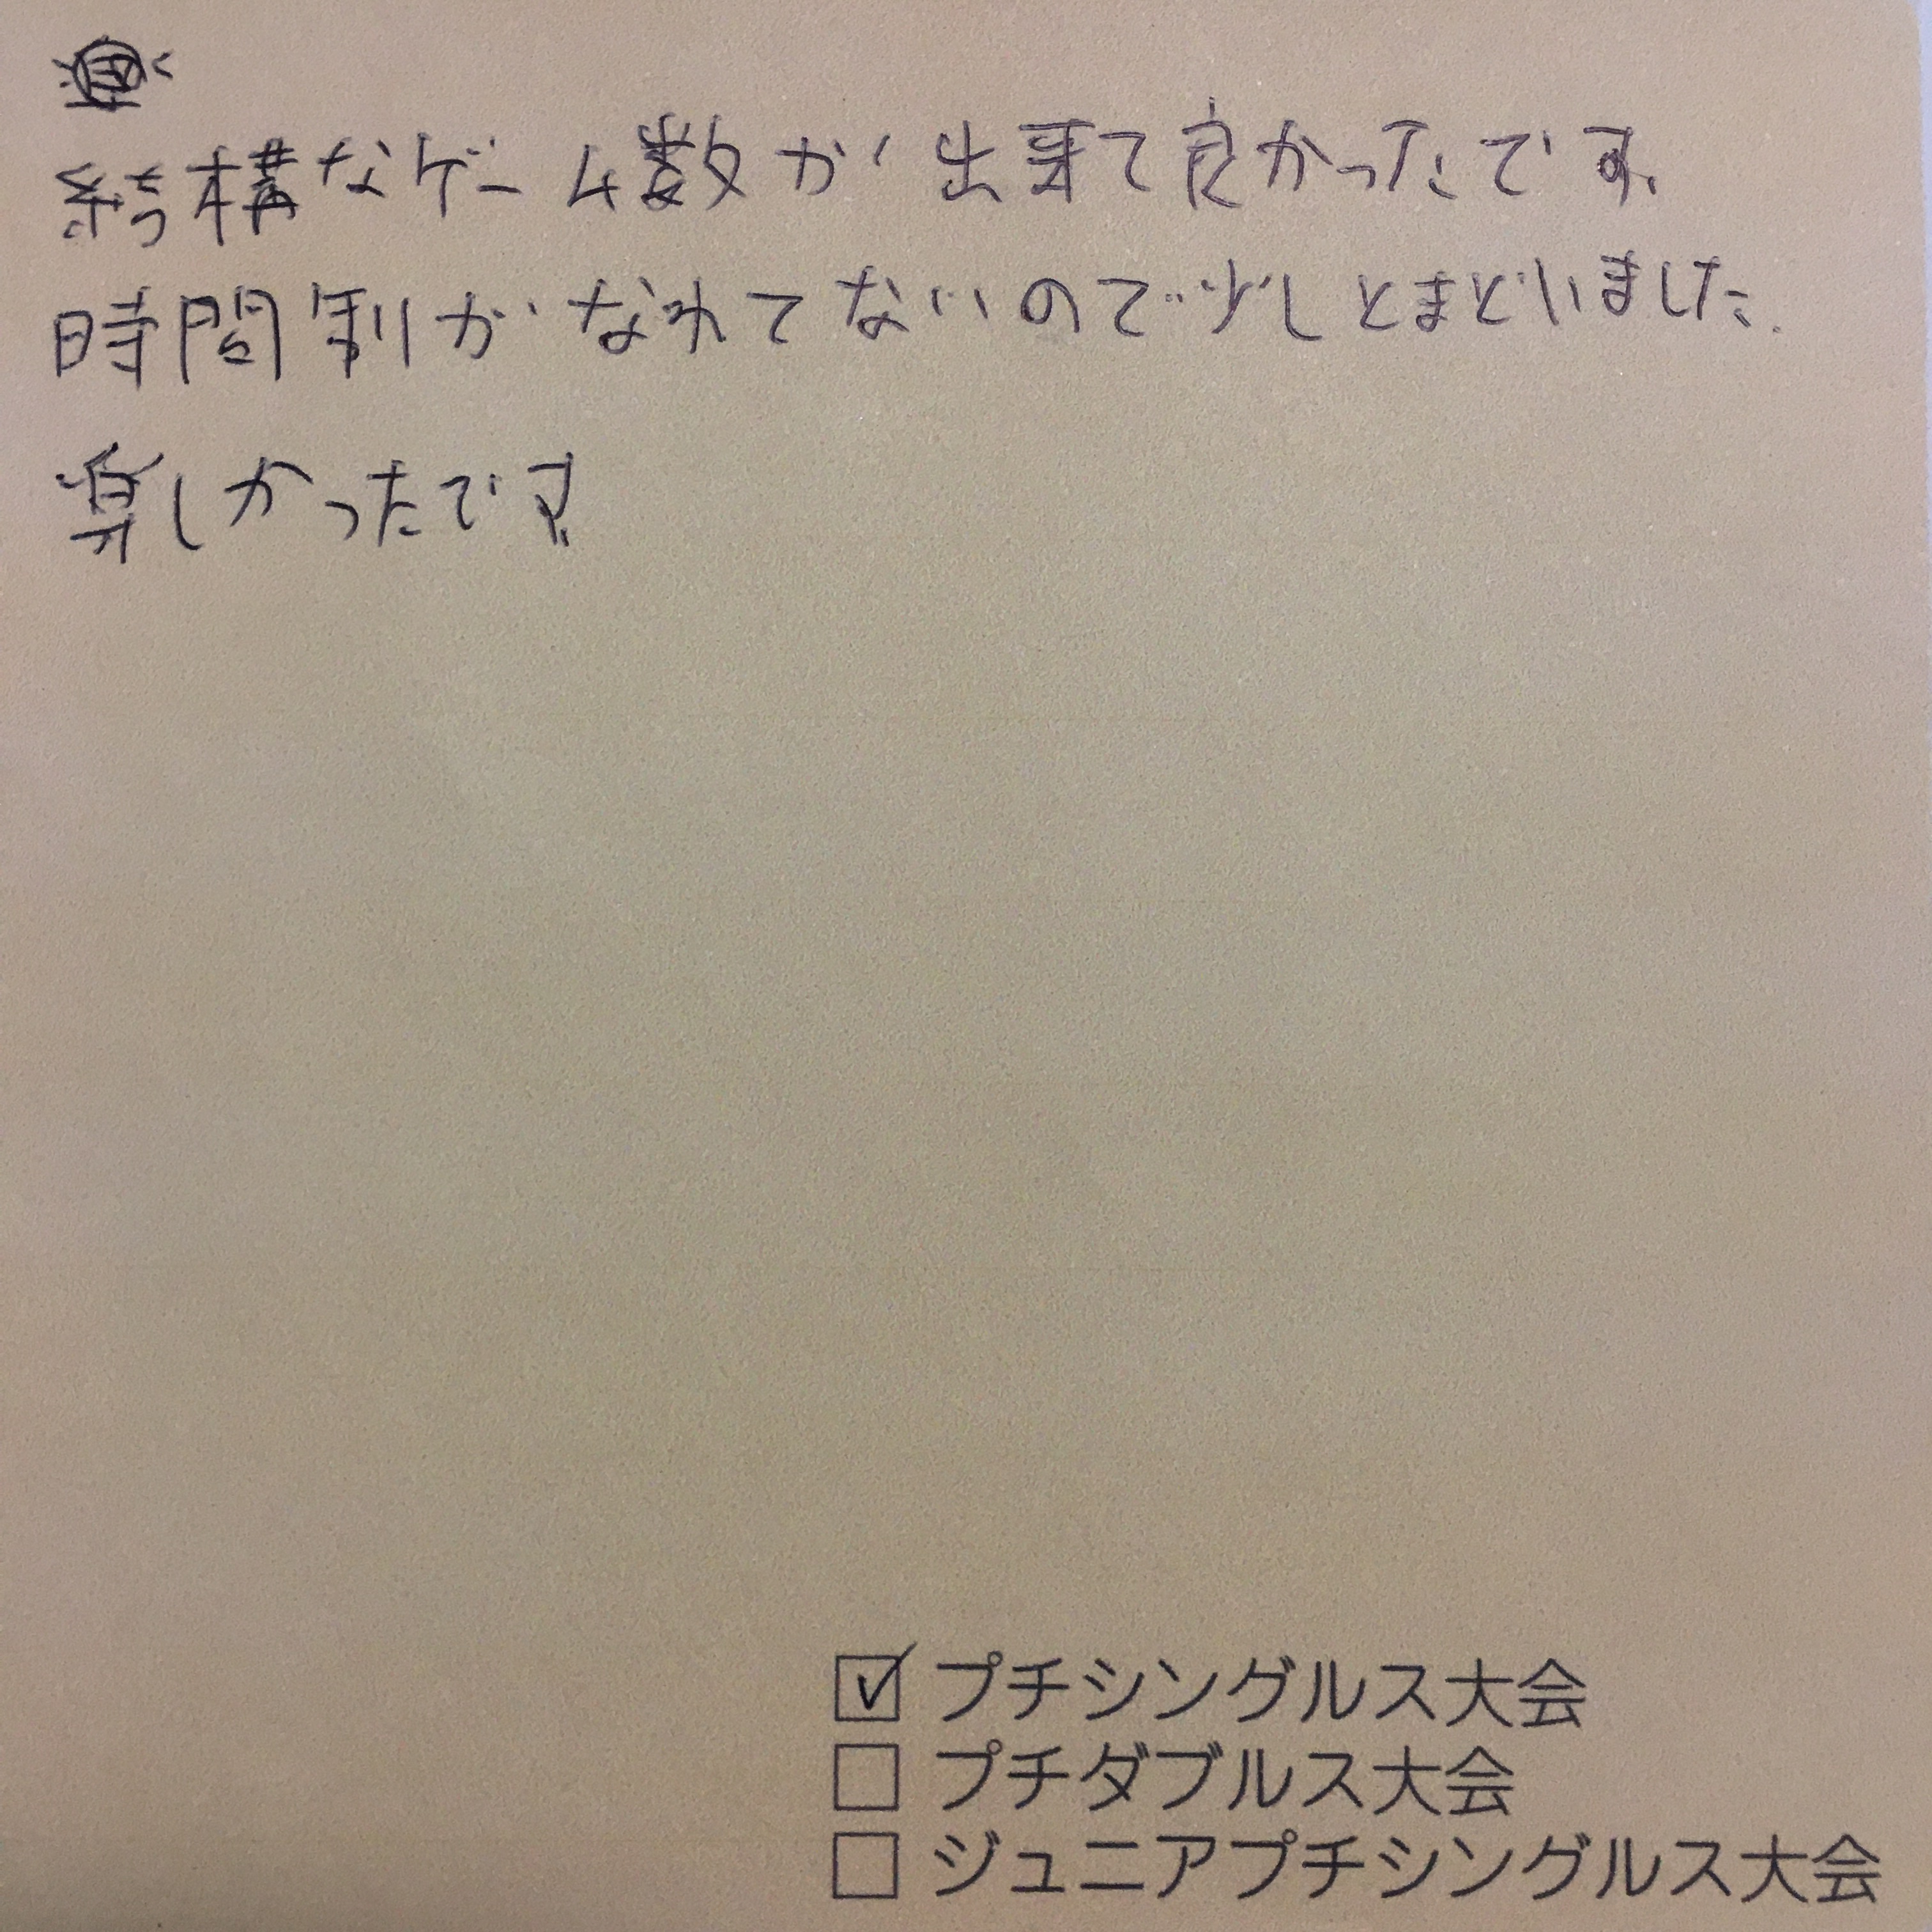 結構なゲーム数が出来て良かったです。
時間制がなれてないので少しとまどいました.
楽しかったです
☑ プチシングルス大会
☐ プチダブルス大会
☐ ジュニアプチシングルス大会